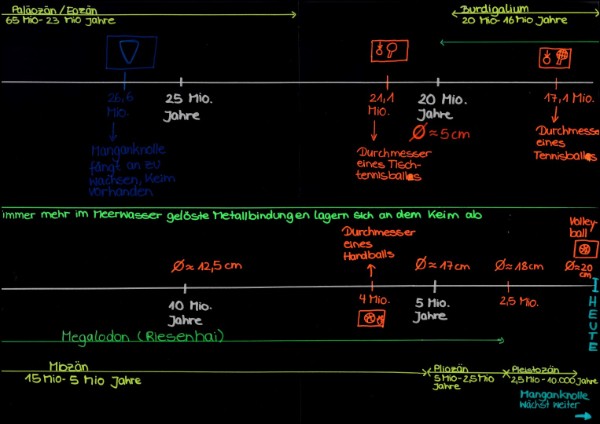 Paläozän/Eozän
65 Mio-23 mio Jahre
Burdigalium
20 Mio-16 mio Jahre
26,6
Mio.
25 Mio.
Jahre
21,1
Mio.
20 Mio.
Jahre
17,1 Mio.
Ø≈5cm
Manganknolle
fängt an zu
wachsen, Keim
vorhanden
Durchmesser
eines Tisch-
tennisballes
Durchmesser
eines
Tennisballes
immer mehr im Meerwasser gelöste Metallbindungen lagern sich an dem Keim ab
Volley-
ball
Durchmesser
eines
Handballs
Ø≈12,5cm
Ø≈17cm
Ø≈18cm
Ø≈20
cm
10 Mio.
Jahre
4 Mio.
5 Mio.
Jahre
2,5 Mio.
HEUTE
Megalodon (Riesenhai)
Miozän
15 Mio-5 mio Jahre
Pliozän
5 Mio-2,5 Mio
Jahre
Pleistozän
2,5 Mio-10.000 Jahre
Manganknolle
wächst weiter